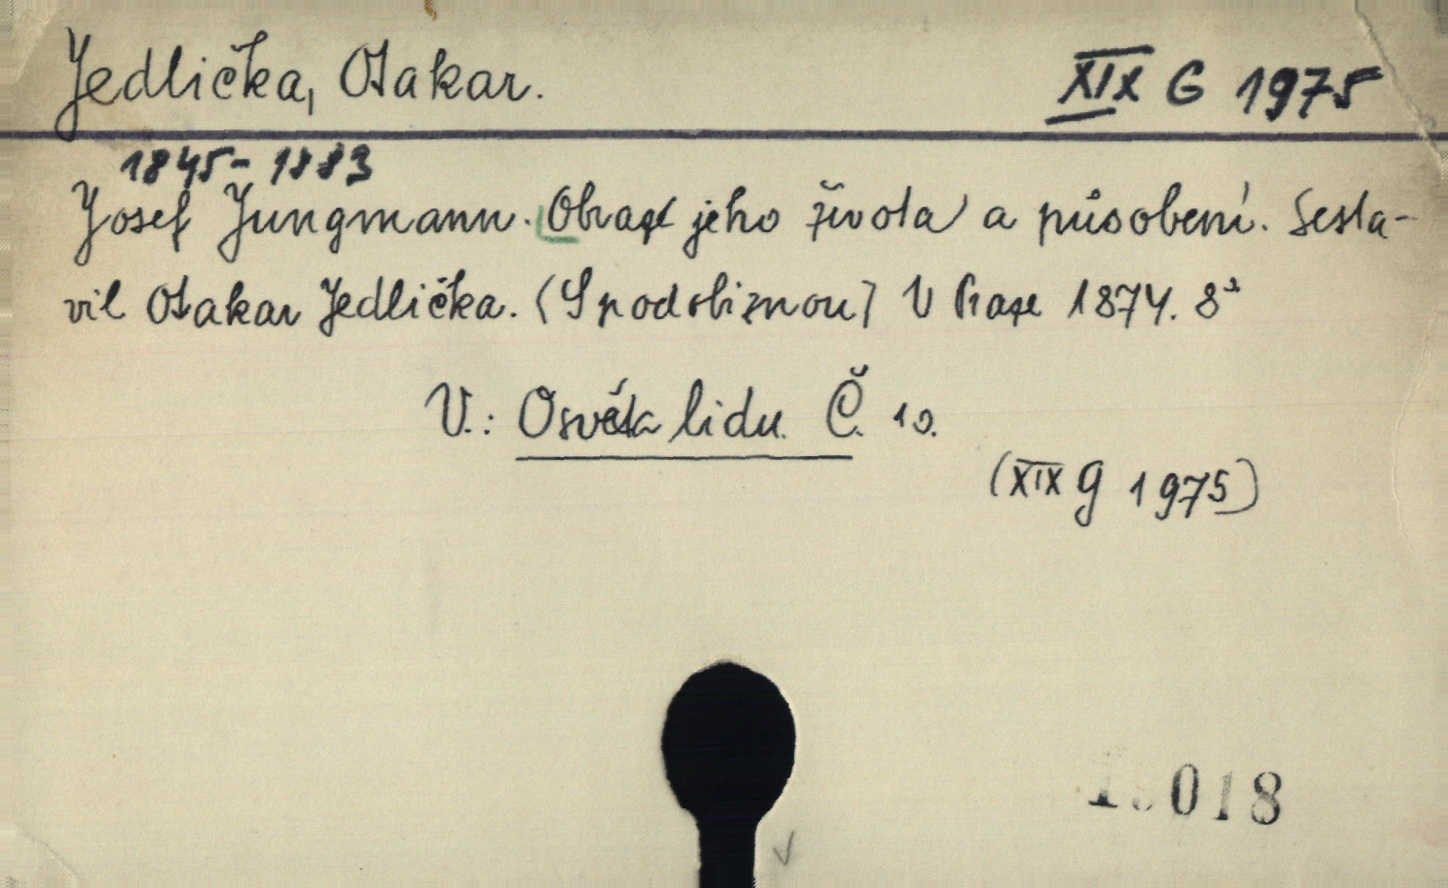 Jedlička, Otakar.
XIX G 1975
1845-1883
Josef Jungmann. Obraz jeho života a působení. Sesta-
vil Otakar Jedlička. (S podobiznou) V Praze 1874. 8°
V.: Osvěta lidu. Č. 10.
(XIX G 1975)
018